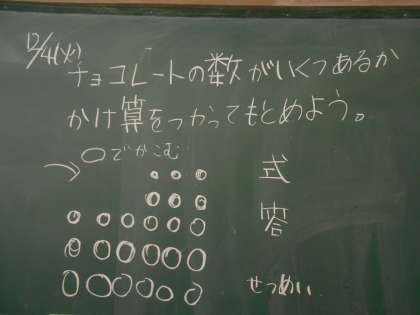 12/4(火)
チョコレートの数がいくつあるか
かけ算をつかってもとめよう。
○でかこむ
式
答
せつめい